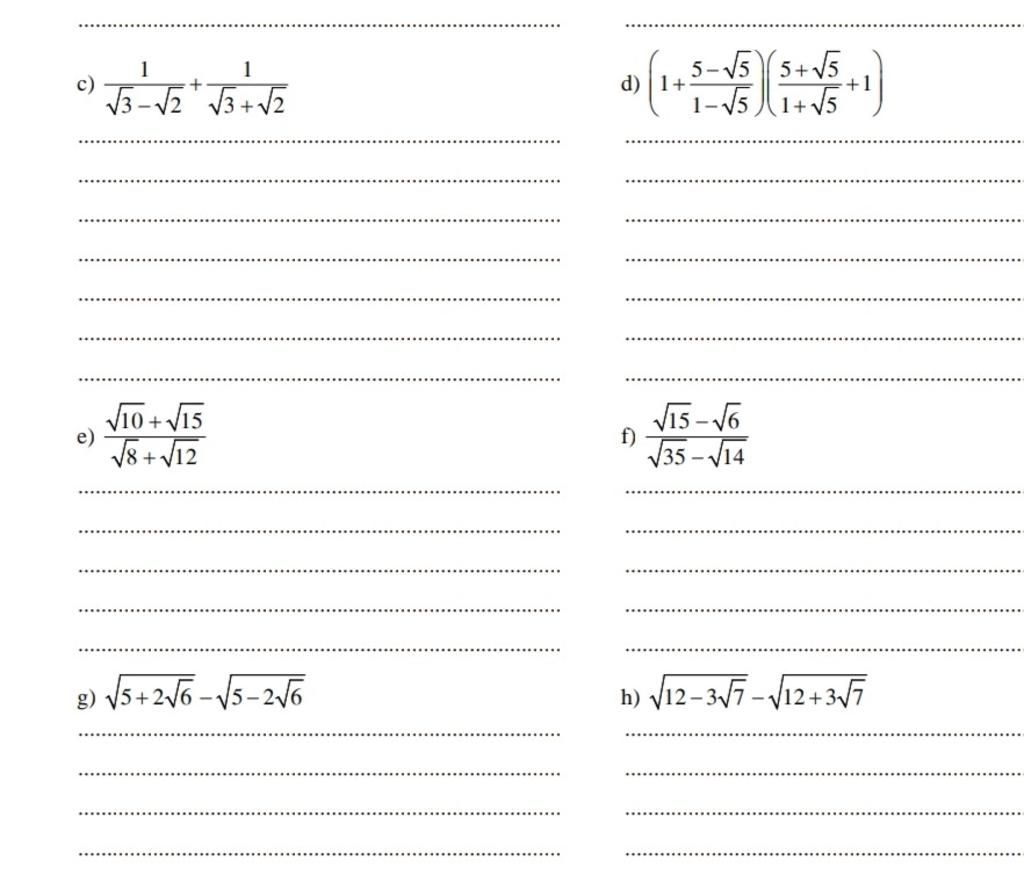 c) \frac{1}{\sqrt{3}-\sqrt{2}}+\frac{1}{\sqrt{3}+\sqrt{2}}
d) \left(1+\frac{5-\sqrt{5}}{1-\sqrt{5}}\right)\left(\frac{5+\sqrt{5}}{1+\sqrt{5}}+1\right)
e) \frac{\sqrt{10}+\sqrt{15}}{\sqrt{8}+\sqrt{12}}
f) \frac{\sqrt{15}-\sqrt{6}}{\sqrt{35}-\sqrt{14}}
g) \sqrt{5+2\sqrt{6}}-\sqrt{5-2\sqrt{6}}
h) \sqrt{12-3\sqrt{7}}-\sqrt{12+3\sqrt{7}}